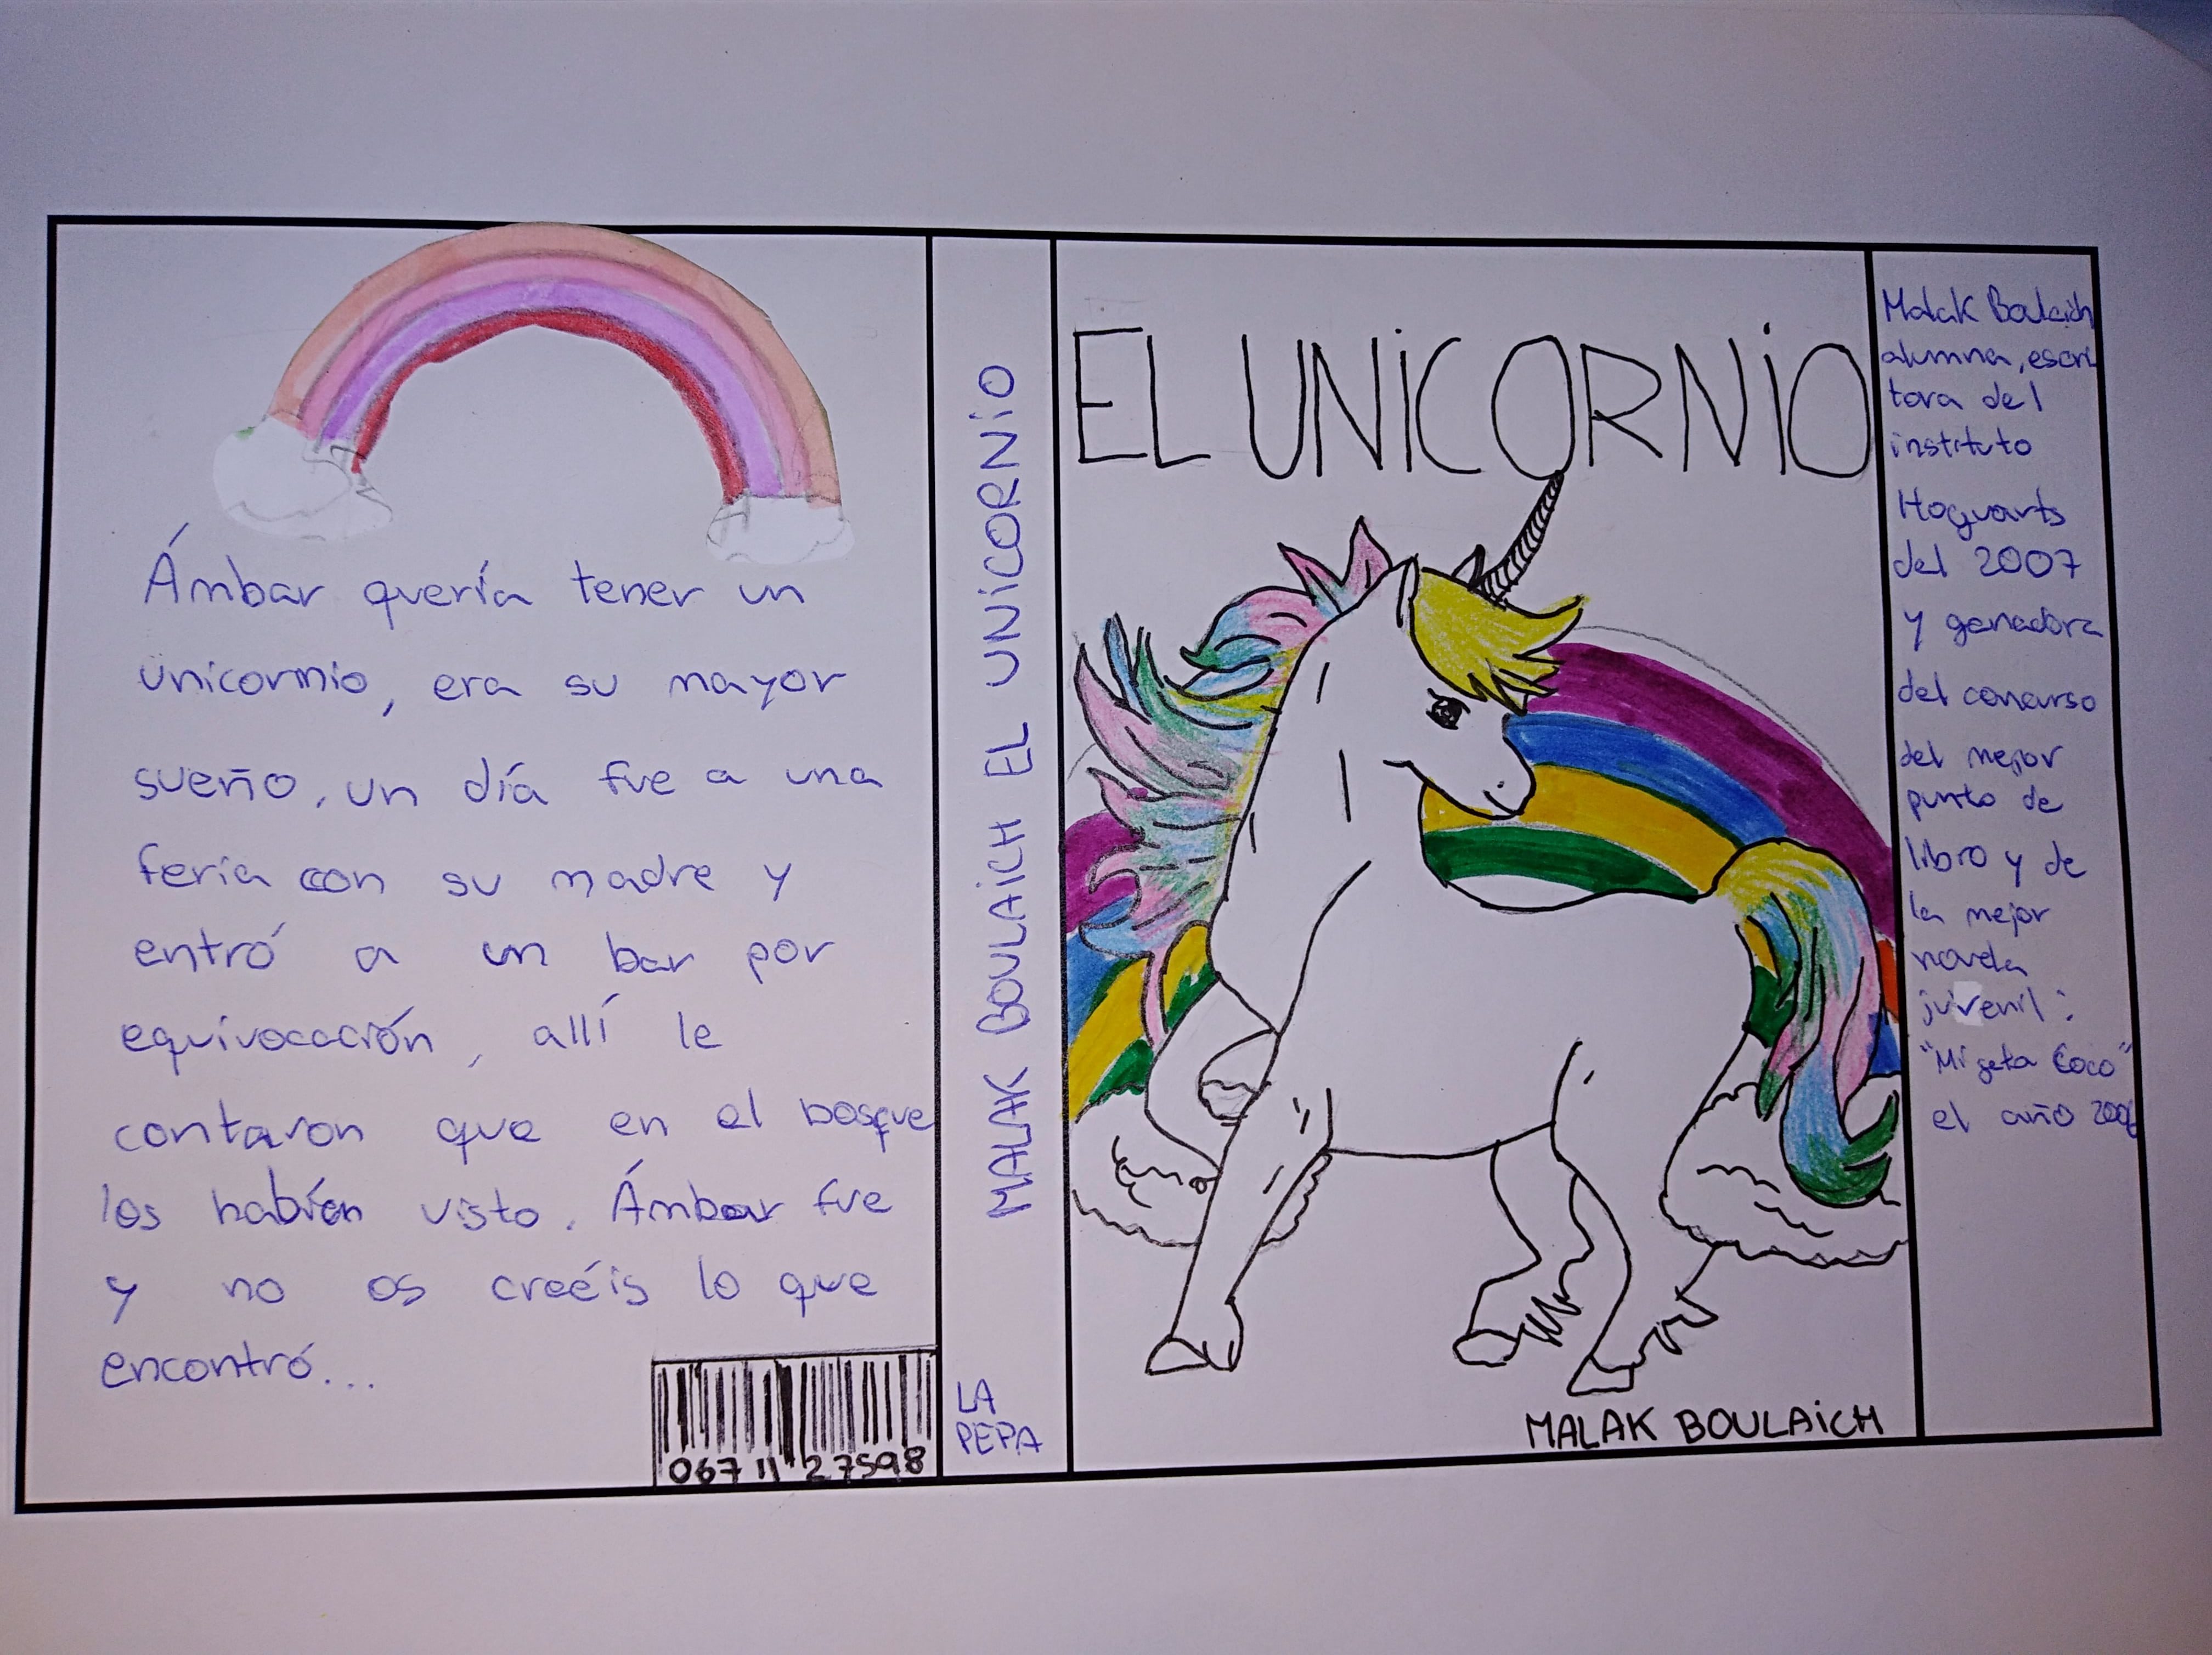 Ámbar quería tener un
unicornio, era su mayor
sueño, un día fue a una
feria con su madre y
entró a un bar por
equivocación, allí le
contaron que en el bosque
los habían visto. Ámbar fue
y no os creéis lo que
encontró...
067 11 27598
MALAK BOULAICH EL UNICORNIO
LA
PEPA
EL UNICORNIO
MALAK BOULAICH
Malak Boulaich
alumna, escri
tora del
instituto
Hoguarts
del 2007
y ganadora
del concurso
del mejor
punto de
libro y de
la mejor
novela
juvenil:
"Mi gata Coco"
el año 2006